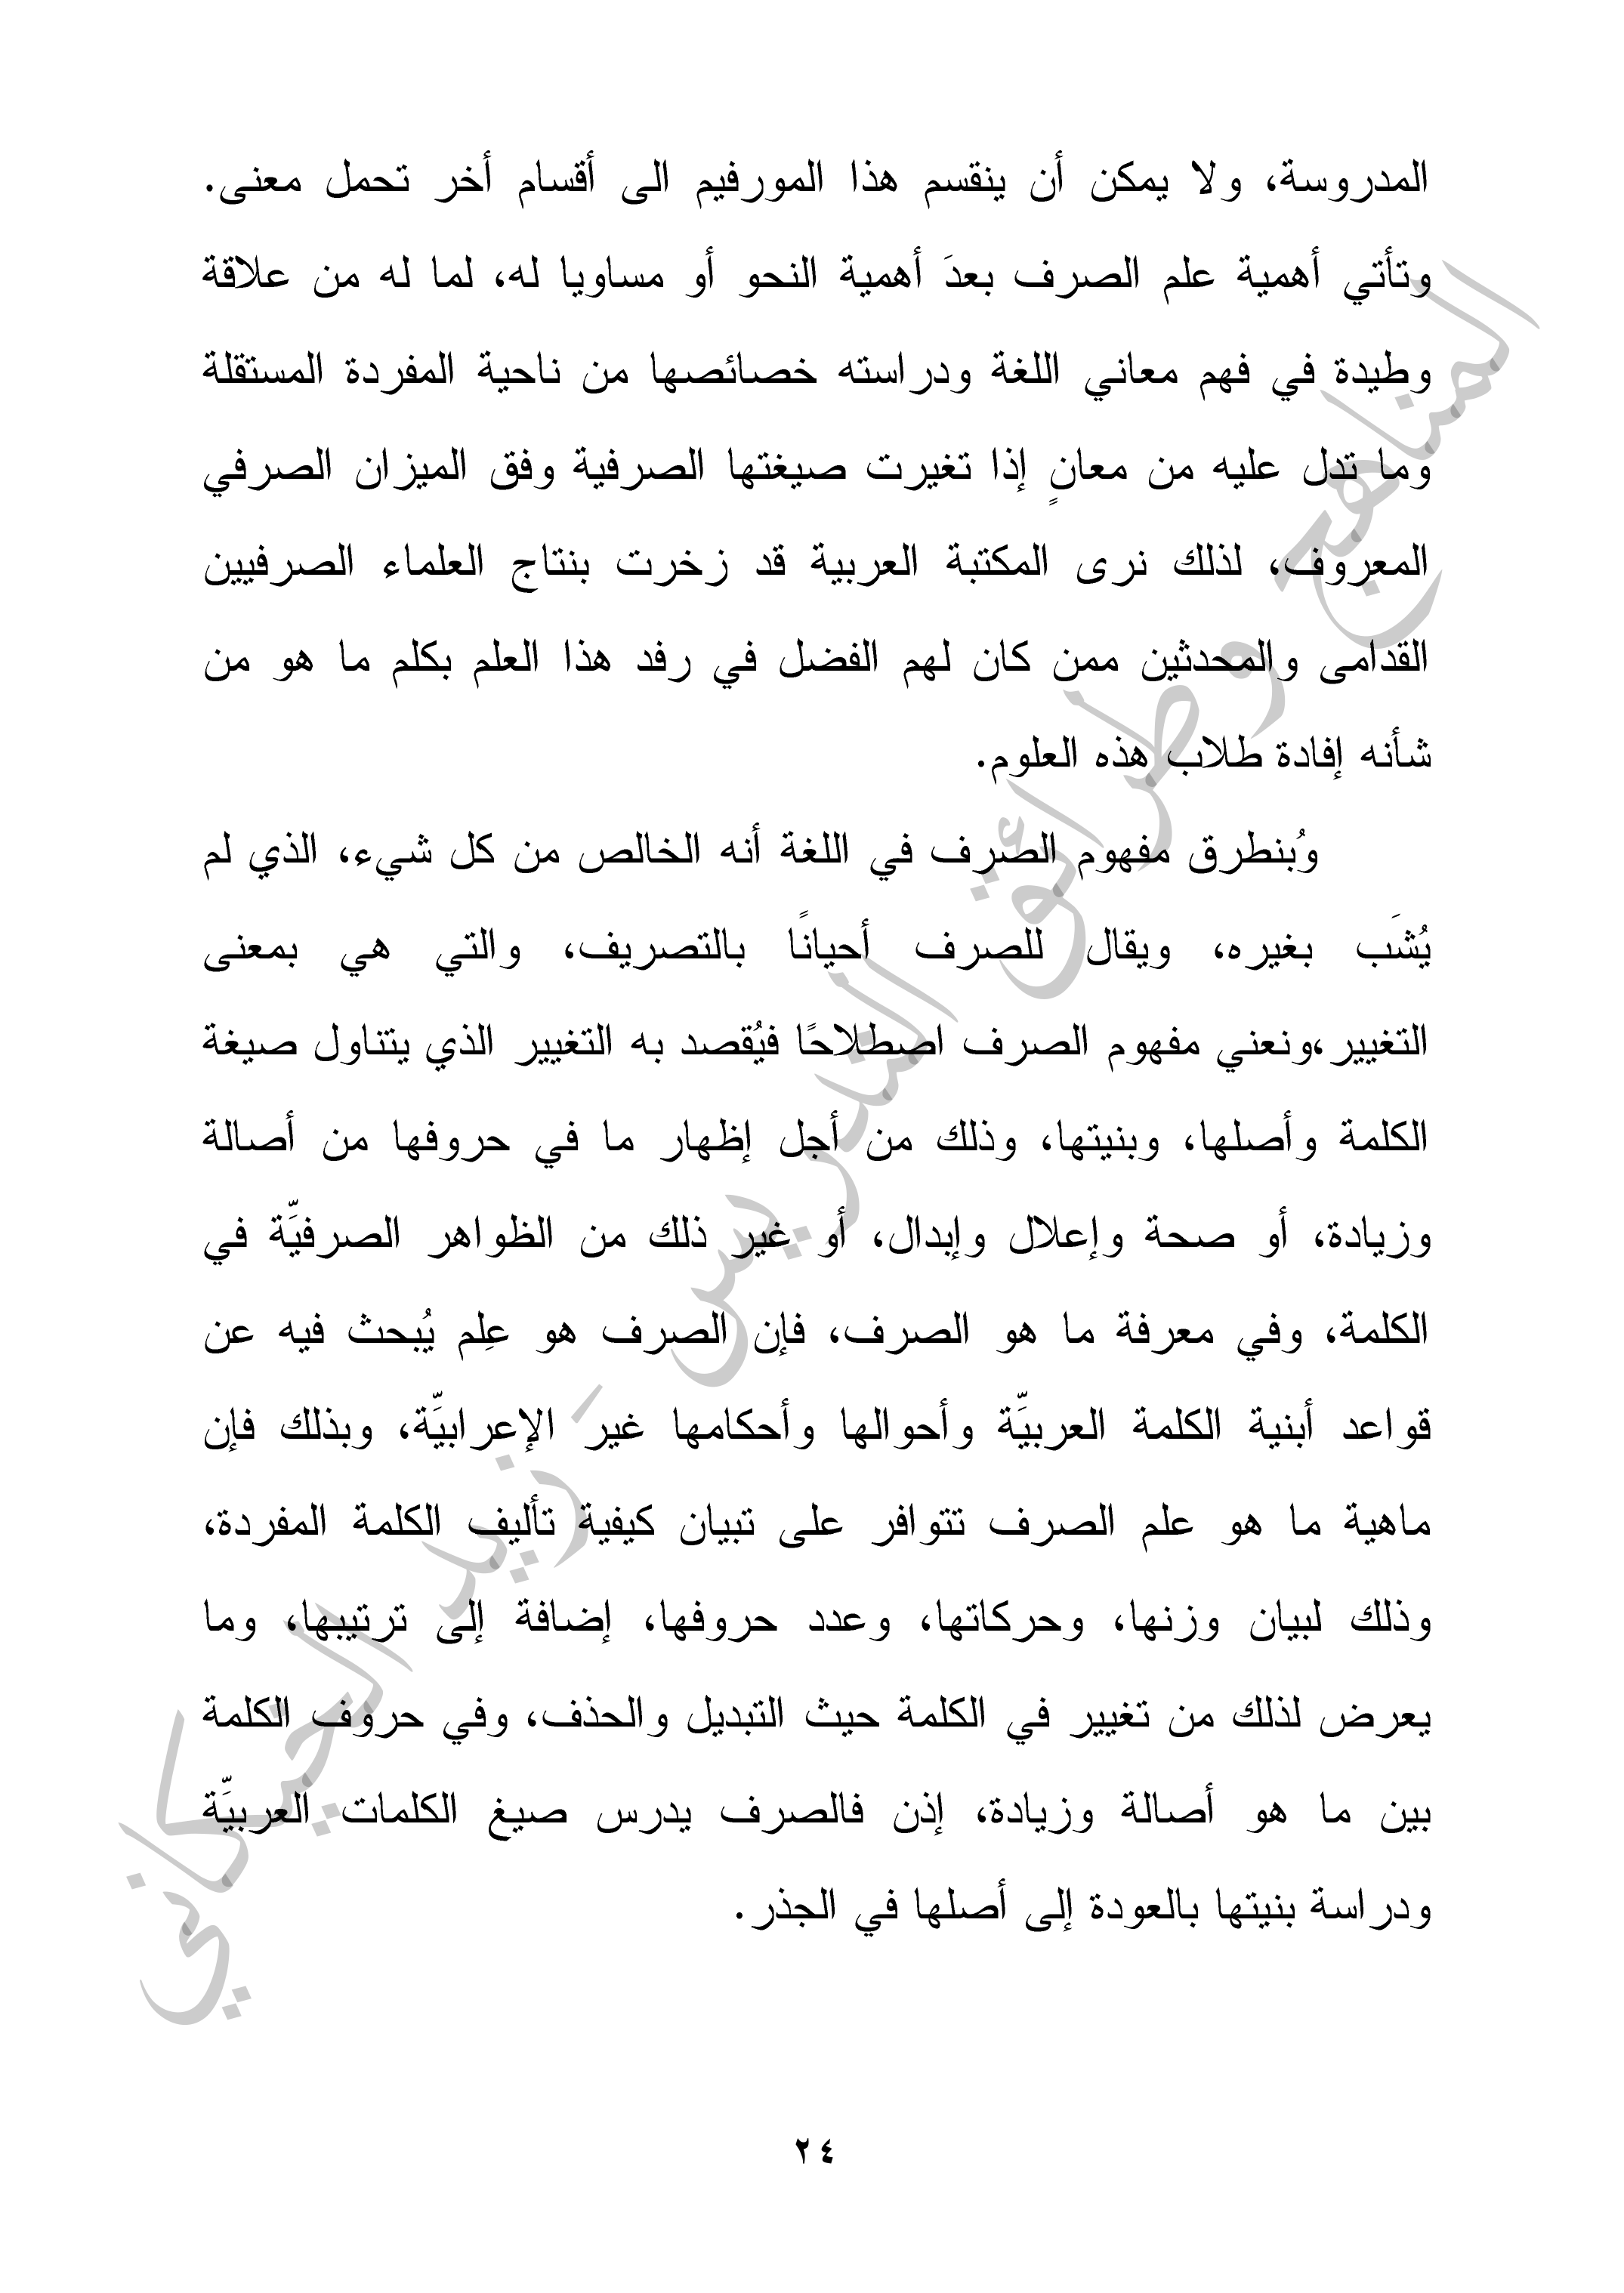 المدروسة، ولا يمكن أن ينقسم هذا المورفيم الى أقسام أخر تحمل معنى.
وتأتي أهمية علم الصرف بعدَ أهمية النحو أو مساويا له، لما له من علاقة
وطيدة في فهم معاني اللغة ودراسته خصائصها من ناحية المفردة المستقلة
وما تدل عليه من معانٍ إذا تغيرت صيغتها الصرفية وفق الميزان الصرفي
المعروف، لذلك نرى المكتبة العربية قد زخرت بنتاج العلماء الصرفيين
القدامى والمحدثين ممن كان لهم الفضل في رفد هذا العلم بكلم ما هو من
شأنه إفادة طلاب هذه العلوم.
وُبنطرق مفهوم الصرف في اللغة أنه الخالص من كل شيء، الذي لم
يُشَب بغيره، ويقال للصرف أحيانًا بالتصريف، والتي هي بمعنى
التغيير،ونعني مفهوم الصرف اصطلاحًا فيُقصد به التغيير الذي يتناول صيغة
الكلمة وأصلها، وبنيتها، وذلك من أجل إظهار ما في حروفها من أصالة
وزيادة، أو صحة وإعلال وإبدال، أو غير ذلك من الظواهر الصرفيَّة في
الكلمة، وفي معرفة ما هو الصرف، فإن الصرف هو عِلم يُبحث فيه عن
قواعد أبنية الكلمة العربيَّة وأحوالها وأحكامها غير الإعرابيَّة، وبذلك فإن
ماهية ما هو علم الصرف تتوافر على تبيان كيفية تأليف الكلمة المفردة،
وذلك لبيان وزنها، وحركاتها، وعدد حروفها، إضافة إلى ترتيبها، وما
يعرض لذلك من تغيير في الكلمة حيث التبديل والحذف، وفي حروف الكلمة
بين ما هو أصالة وزيادة، إذن فالصرف يدرس صيغ الكلمات العربيَّة
ودراسة بنيتها بالعودة إلى أصلها في الجذر.
المناهج وطرائق التدريس - زيد الخيكاني
٢٤